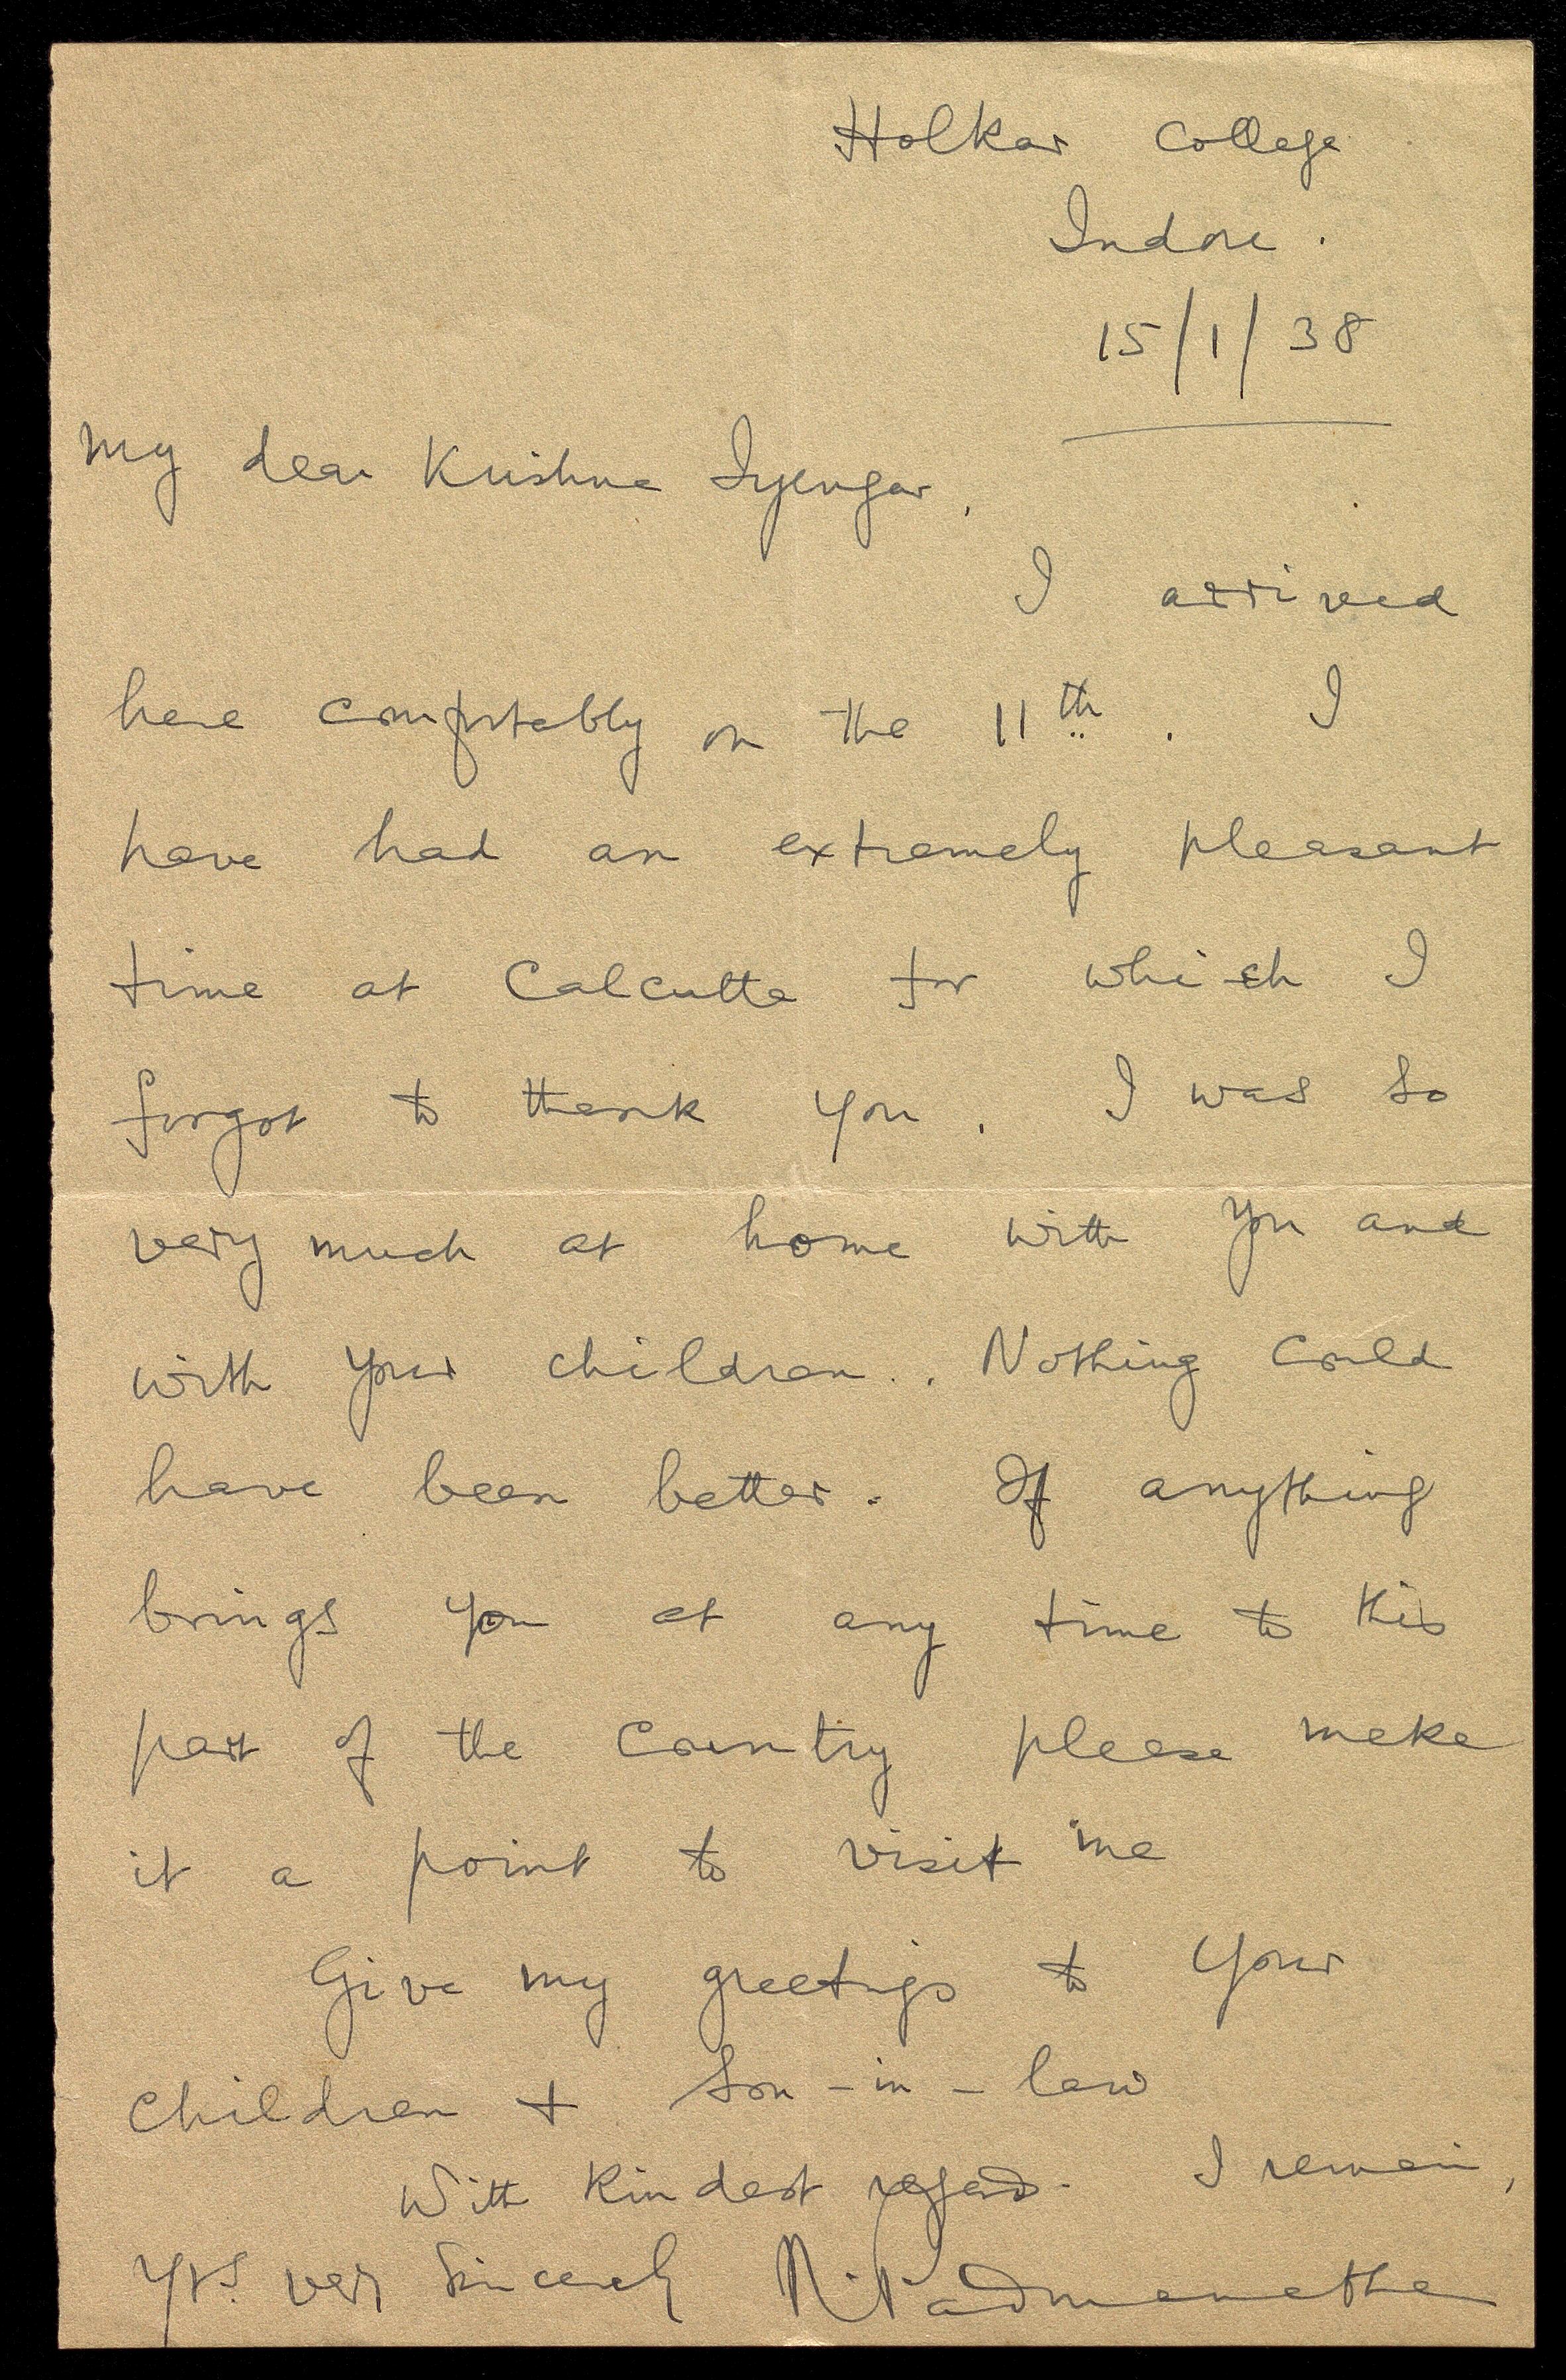 Holkar College
Indore.
15/1/38
My dear Krishna Iyengar,
I arrived
here comfortably on the 11th. I
have had an extremely pleasant
time at Calcutta for which I
forgot to thank you. I was so
very much at home with you and
with your children.. Nothing could
have been better. If anything
brings you at any time to this
part of the country please make
it a point to visit me
Give my greetings to your
children + son-in-law
With kindest regards. I remain,
Yrs. very sincerely N. Padmanabha